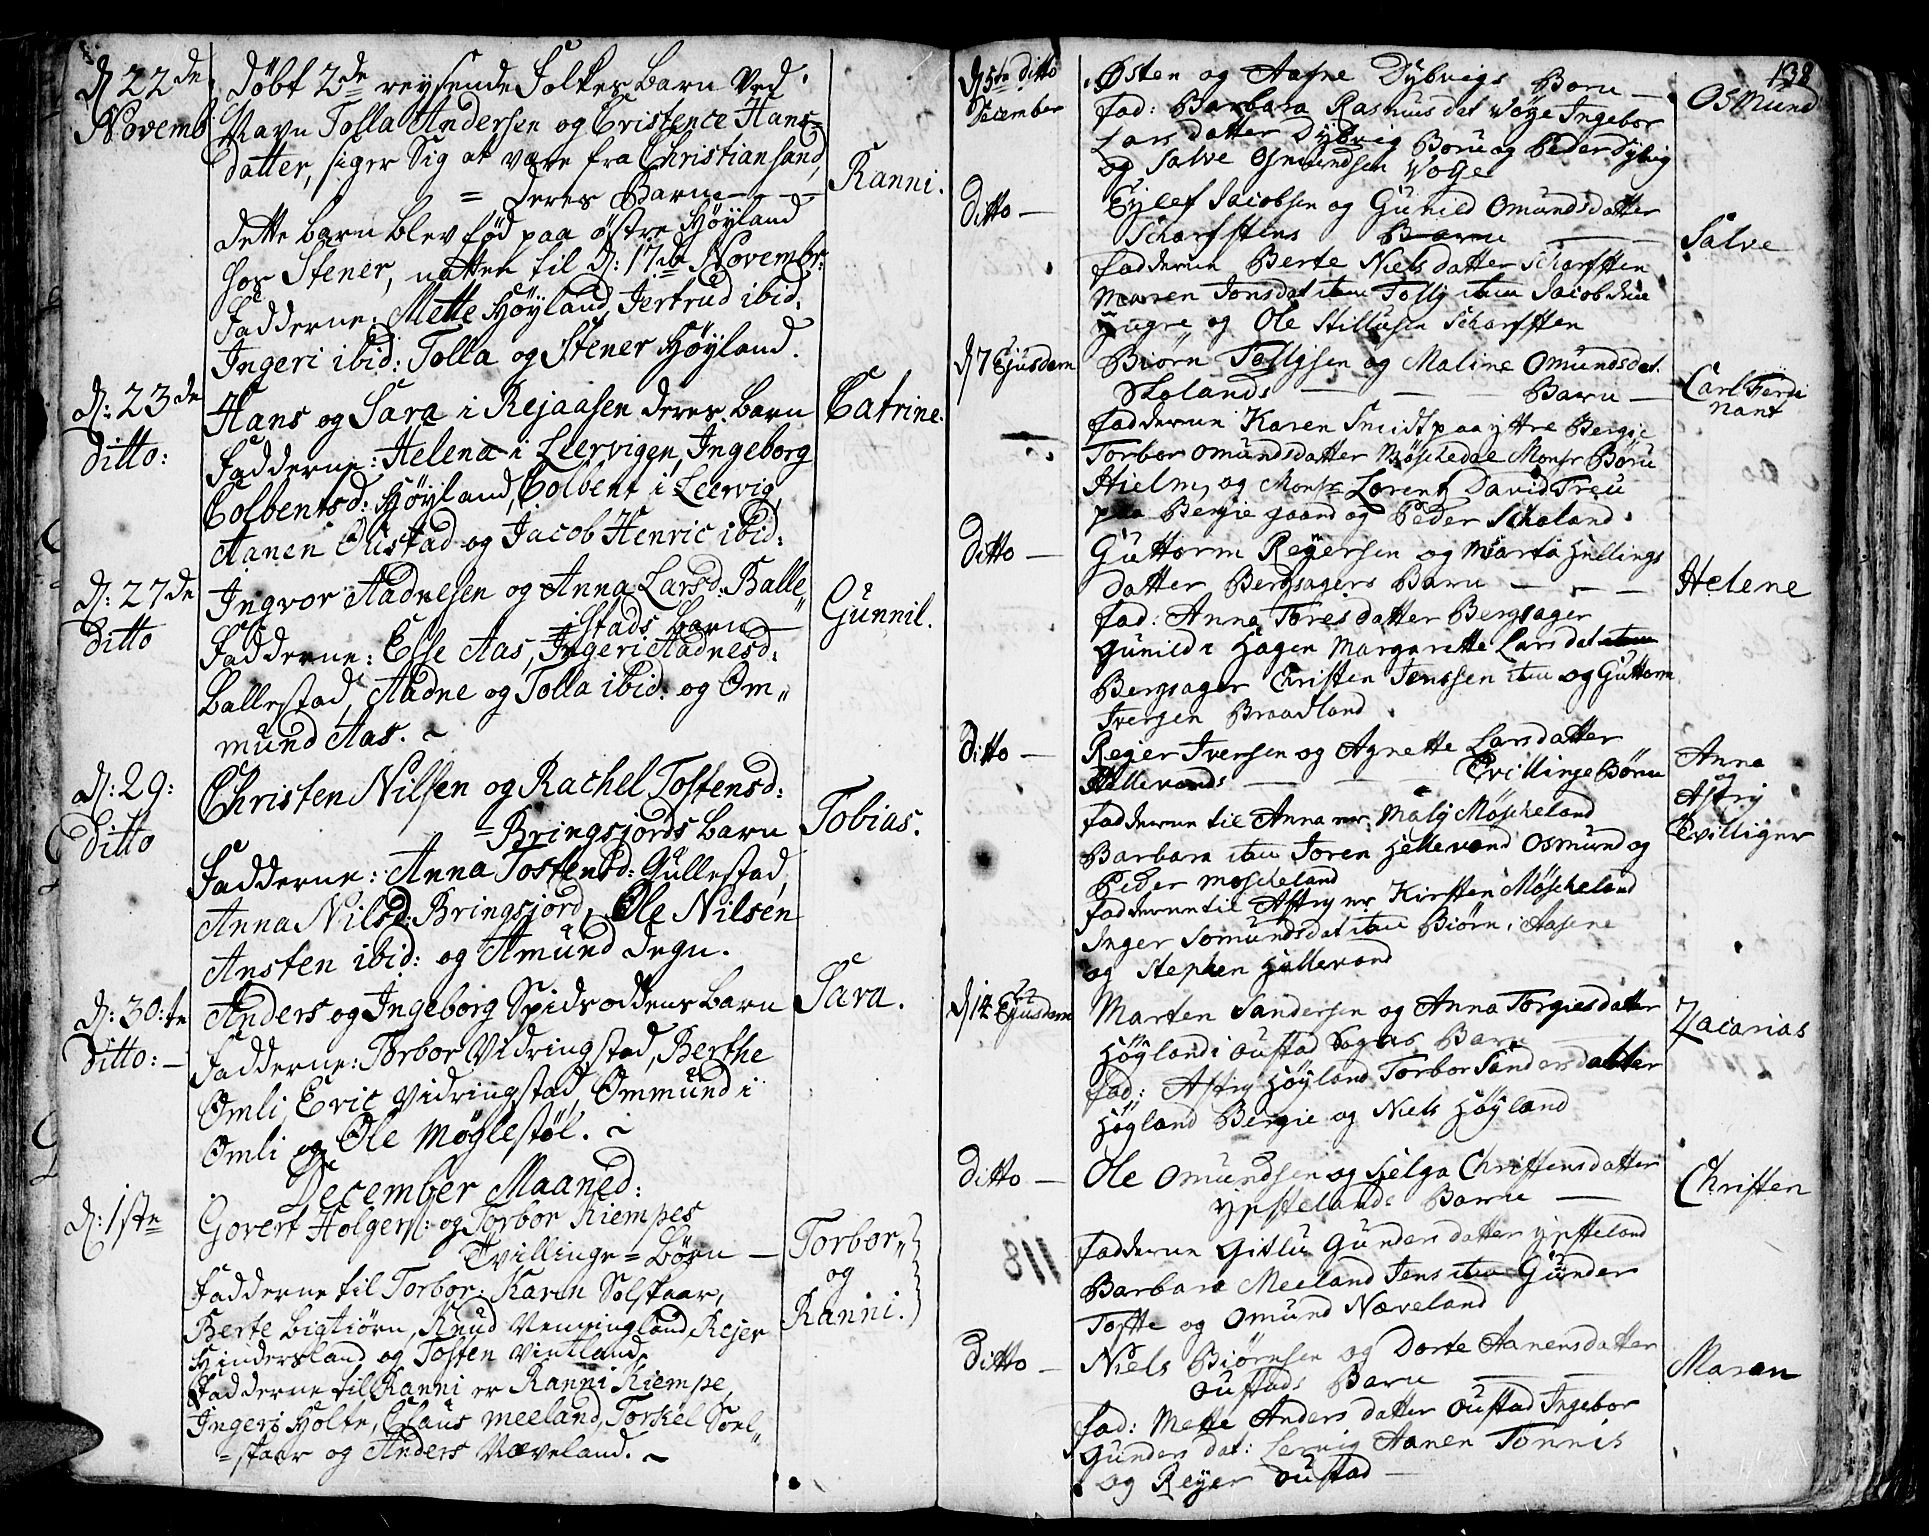 d: 22de
Novemb:
døbt 2de reysende Folkes barn Ved
Navn Tolla Andersen og Cristence Hans-
datter, siger Sig at være fra Christiansand,
= deres Barn - - -
Ranni.
dette barn blev fød paa østre Høyland
hos Stener, natten til d: 17de Novembr:
Fadderne: Mette Høyland, Jertrud ibid:
Ingeri ibid: Tolla og Stener Høyland.
d: 23de
ditto:
Hans og Sara i Rejaasen deres barn
Catrine.
Fadderne: Helena i Leervigen, Ingeborg
Colbentsd: Høyland, Colbent i Leervig,
Aanen Oustad og Jacob Henric ibid:
d: 27de
ditto
Ingvor Aadnesen og Anna Larsd: Balle„
„stads barn —
Gunnil.
Fadderne: Else Aas, Ingeri Aadnesd:
Ballestad, Aadne og Tolla ibid: og Om„
mund Aas.
d: 29:
ditto
Christen Nilsen og Rachel Tostensd:
= Bringsjords barn
Tobias.
Fadderne: Anna Tostensd: Gullestad,
Anna Nilsd: Bringsjord, Ole Nilsen
Ansten ibid: og Amund Degn.
d: 30:te
ditto: -
Anders og Ingeborg Spidsoddens barn
Sara.
Fadderne: Torbor Vidringstad, Berthe
Omli, Eric Vidringstad, Ommund i
Omli og Ole Møglestøl.
December Maaned:
d: 1ste
Govert Holgers: og Torbor Kiempes
Tvillinge = børn —
Torbor„
og
Ranni.
Fadderne til Torbor: Karen Solstaar,
Berte Bigtiørn, Knud Venningland, Rejer
Hindersland og Tosten Vintland.
Fadderne til Ranni er Ranni Kiempe,
Ingeri Holte, Claus Meeland, Torkel Soel„
=staar og Anders Næveland.
138
d 5te ditto
December
Østen og Aasne Dybvigs Born —
Osmund
fad: Barbara Rasmusdat Voge Ingebor
Lars datter Dybvig Boru og Peder Dybvig
og Salve Osmundsen Voge
Ditto —
Eylef Jacobsen og Gunild Omundsdatter
Scharfstens Barn — —
Salve
fadderne Berte Niels datter Scharfsten
Maren Jonsdat item Tollg item Jacob den
yngre og Ole Stillufsen Scharfsten
d 7 Ejusdem
Biørn Tollgsen og Maline Omundsdat
Skolands — — — Barn —
Carl Ferdi
nant
fadderne Karen Smidt paa ytre Bergie
Torbor Omundsdatter Møskedal Monsr Børu
Hielm, og Monsr Lorentz David Treu
paa Bergie gaard og Peder Skoland.
Ditto —
Guttorm Reyersen og Marta Hellings
datter Bergsagers Barn — — —
Helene
fad: Anna Tores datter Bergsager
Gunild i Hagen Margarette Larsdat item
Bergsager Christen Jenssen item og Guttorm
Iversen Braadland
Ditto —
Rejer Iversen og Agnette Larsdatter
Hellevands — — — Tvillinge Børn
Anna
og
Astrj
Tvillinger
fadderne til Anna er: Malj Møskeland
Barbara item Joren Hellevand Osmund og
Peder Moskeland
fadderne til Astrj er Kirsten Møskeland
Inger Somundsdat item Biørn i Aasene
og Stephen Hellevand
d 14 Ejusdem
Marten Sandersen og Anna Torgiesdatter
Høyland i Oustad Sogns Barn
Zacarias
fad: Astrj Høyland Torbor Sandersdatter
Høyland Bergie og Niels Høyland
Ditto —
Ole Omundsen og Helga Christensdatter
Ypstelands Barn —
Christen
fadderne Gislu Gunders datter Ypsteland
Barbara Meeland Jens item Gunder
Tofte og Omund Næveland
118
Ditto —
Niels Biørnsen og Dorte Aanensdatter
Oustads Barn — —
Maren
fad: Mette Anders datter Oustad Ingebor
Gunders dat: Lervig Aanen Tønnis
og Reyer Oustad —